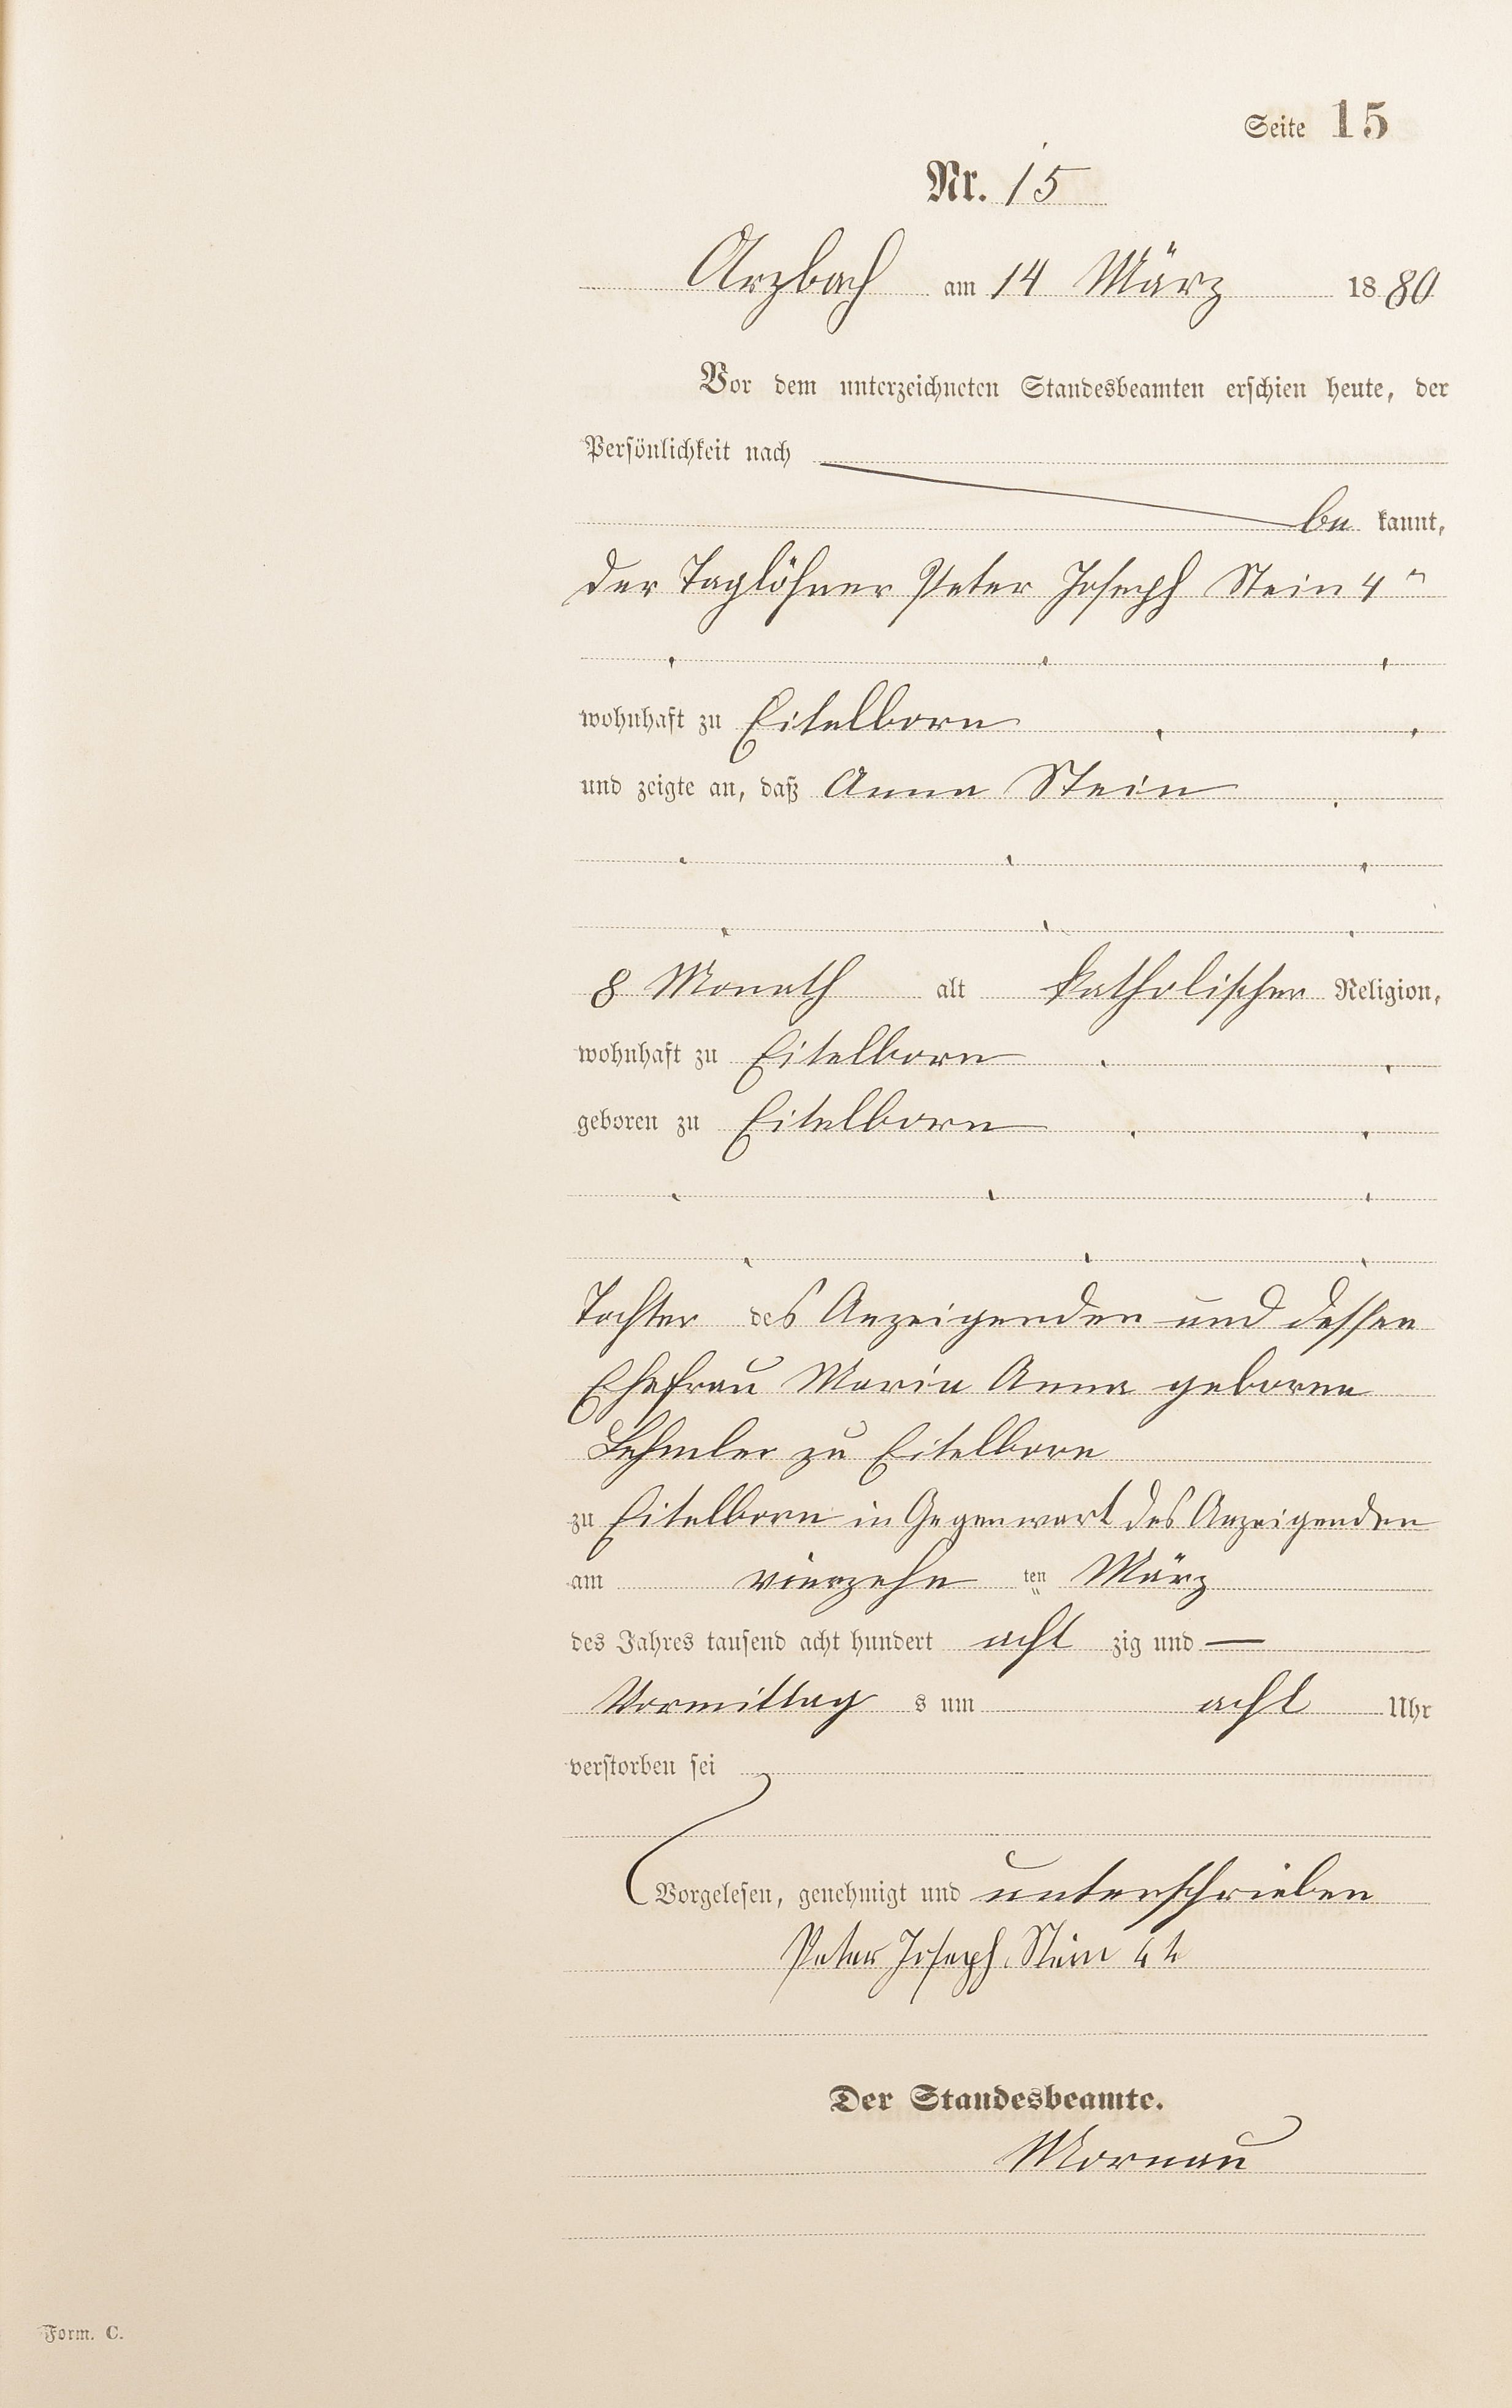 Seite 15
Nr. 15
Arzbach am 14 März 1880
Vor dem unterzeichneten Standesbeamten erschien heute, der
Persönlichkeit nach
be kannt,
der Taglöhner Peter Joseph Stein 4n
wohnhaft zu Eitelborn
und zeigte an, daß Anna Stein
8 Monath alt katholischer Religion,
wohnhaft zu Eitelborn
geboren zu Eitelborn
Tochter des Anzeigenden und dessen
Ehefrau Maria Anna geborne
Lehmler zu Eitelborn
zu Eitelborn in Gegenwart des Anzeigenden
am vierzehn ten März
des Jahres tausend acht hundert acht zig und —
Vormittag s um acht Uhr
verstorben sei
Vorgelesen, genehmigt und unterschrieben
Peter Joseph Stein
Der Standesbeamte.
Mornau
Form. C.